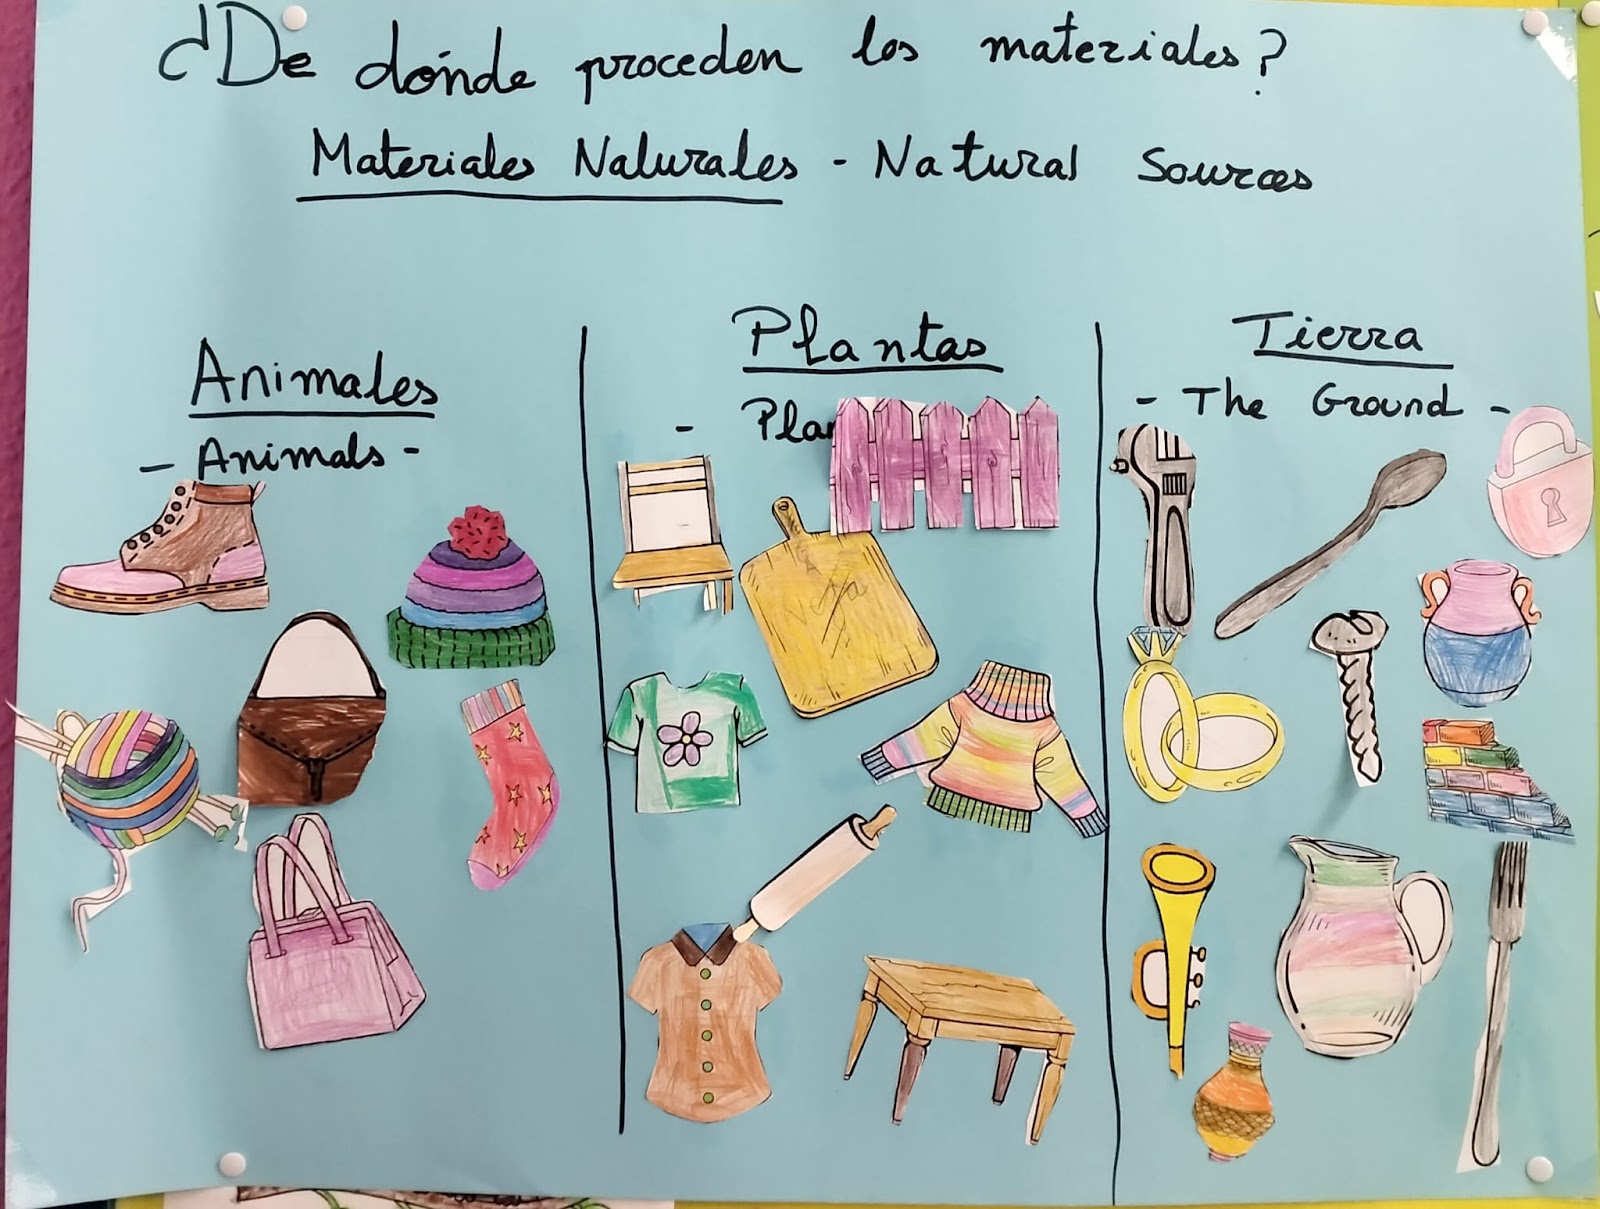 ¿De dónde proceden los materiales?
Materiales Naturales - Natural Sources
Animales
- Animals -
Plantas
- Plan
Tierra
- The Ground -